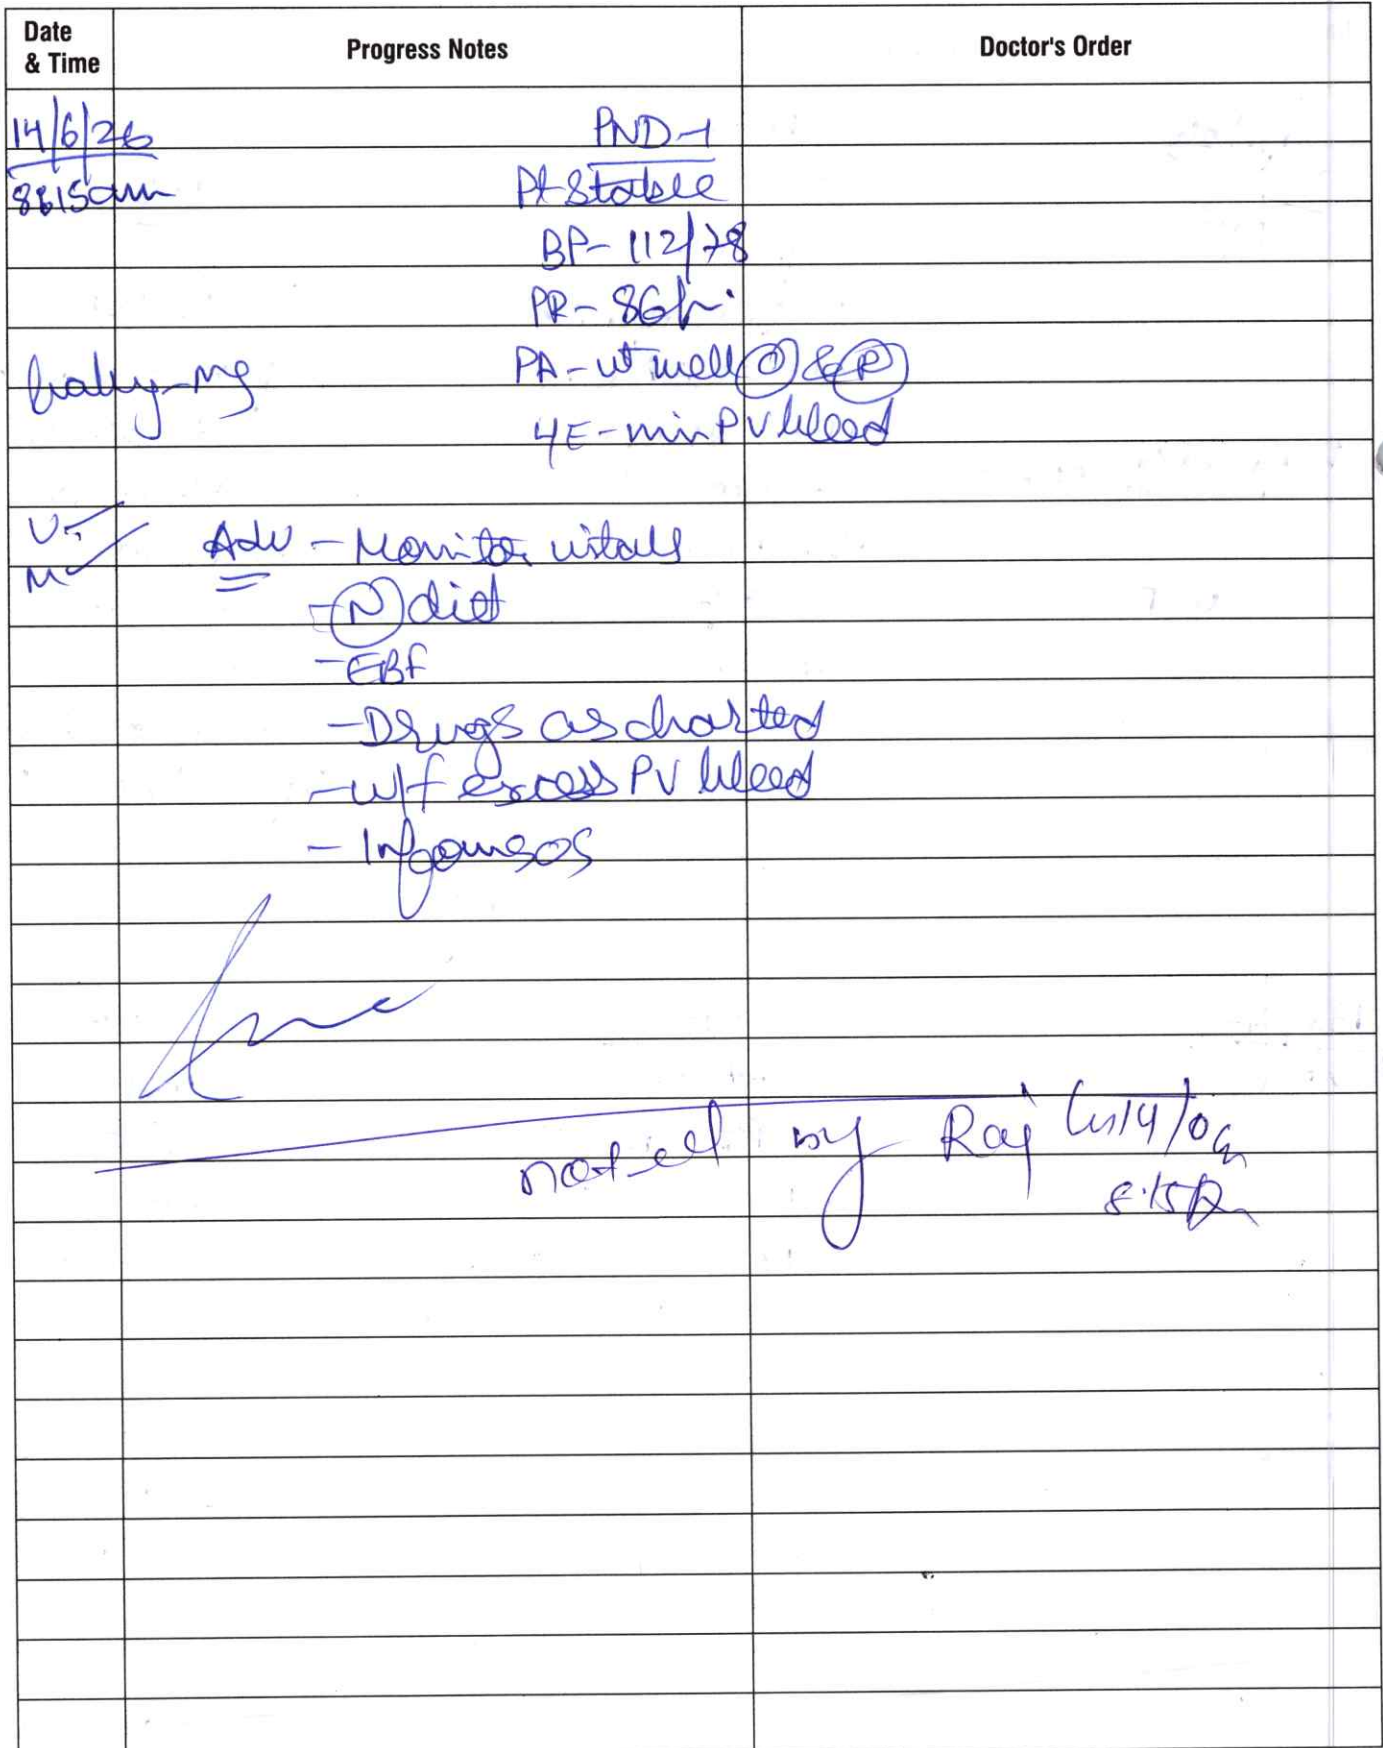 Date & Time Progress Notes Doctor's Order
14/6/26 PND-1
8:15am Pt Stable
BP- 112/78
PR- 86/
PA- ut well
baby-
L/E-min PV bleed
U-
M
Adv - Monitor vitals
- (N) diet
- EBF
- Drugs as charted
- W/f excess PV bleed
- Inform SOS
noted by Raj 14/06
8:15